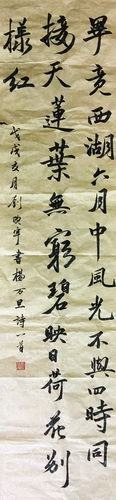 畢竟西湖六月中風光不與四時同
接天蓮葉無窮碧映日荷花别
樣紅
戊戌亥月劉 宇書楊万里詩一首